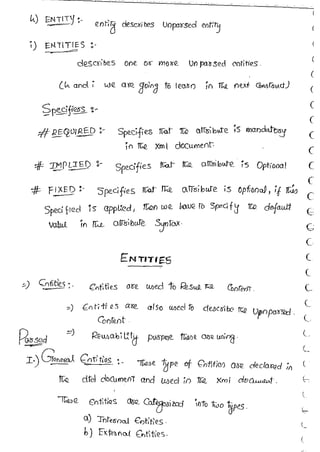 h) ENTITY :- entity describes Unparsed entity
i) ENTITIES :-
describes one or more Unparsed entities.
(h and i we are going to learn in the next Construct)
Specifiers :-
# REQUIRED :- Specifies that the attribute is mandatory
in the xml document.
# IMPLIED :- Specifies that the attribute is Optional
# FIXED :- Specifies that the attribute is optional, if this
Specified is applied, then we have to Specify the default
Value in the attribute Syntax.
ENTITIES
=) Entities :- Entities are used to Reuse the Content.
=) Entities are also used to describe the Unparsed
Content.
=) Reusability purpose these are using.
Parsed
I.) General Entities :- These type of Entities are declared in
the dtd document and used in the xml document.
These Entities are Categorized into two types.
a) Internal Entities.
b) External Entities.